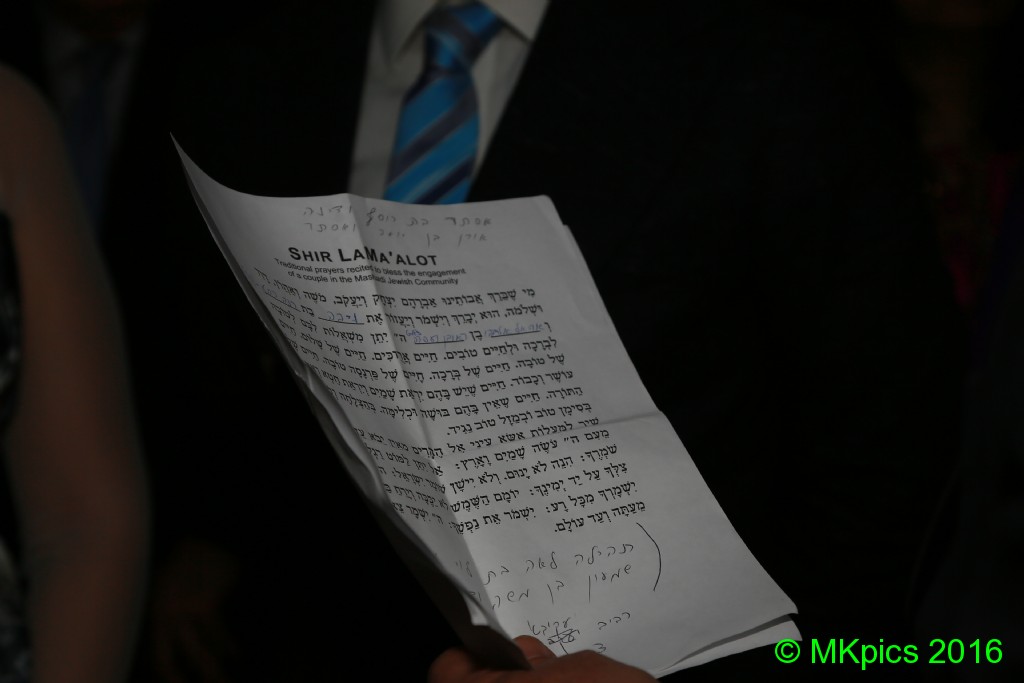 אסתר בת יוסף ודינה
SHIR LAMA'ALOT
Traditional prayers recited to bless the engagement
of a couple in the Mashhadi Jewish Community
מִי שֶׁבֵּרַךְ אֲבוֹתֵינוּ אַבְרָהָם יִצְחָק וְיַעֲקֹב, מֹשֶׁה וְאַהֲרֹן,
וּשְׁלֹמֹה, הוּא יְבָרֵךְ וְיִשְׁמֹר וְיַעֲזֹור אֶת בת
ו בֶּן ה" יִתֵּן מִשְׁאֲלוֹת לִבָּם לְטוֹבָה
לִבְרָכָה וּלְחַיִּים טוֹבִים. חַיִּים אֲרֻכִּים. חַיִּים שֶׁל שָׁלוֹם. חַיִּים
שֶׁל טוֹבָה. חַיִּים שֶׁל בְּרָכָה. חַיִּים שֶׁל פַּרְנָסָה טוֹבָה.
עוֹשֶׁר וְכָבוֹד. חַיִּים שֶׁיֵּשׁ בָּהֶם יִרְאַת שָׁמַיִם וְיִרְאַת חֵטְא
הַתּוֹרָה. חַיִּים שֶׁאֵין בָּהֶם בּוּשָׁה וּכְלִימָה. בְּהַצְלָחָה
בְּסִימָן טוֹב וּבְמַזָּל טוֹב נַגִּיד.
שִׁיר לַמַּעֲלוֹת אֶשָּׂא עֵינַי אֶל הֶהָרִים מֵאַיִן יָבֹא
מֵעִם ה" עֹשֵׂה שָׁמַיִם וָאָרֶץ: אַל יִתֵּן לַמּוֹט
שֹׁמְרֶךָ: הִנֵּה לֹא יָנוּם. וְלֹא יִישָׁן שׁוֹמֵר יִשְׂרָאֵל:
צִלְּךָ עַל יַד יְמִינֶךָ: יוֹמָם הַשֶּׁמֶשׁ לֹא יַכֶּכָּה וְיָרֵחַ
יִשְׁמָרְךָ מִכָּל רָע: יִשְׁמֹר אֶת נַפְשֶׁךָ: ה" יִשְׁמָר
מֵעַתָּה וְעַד עוֹלָם.
תהילה לאה בת
שמעון בן משה
רביב עקיבא
© MKpics 2016